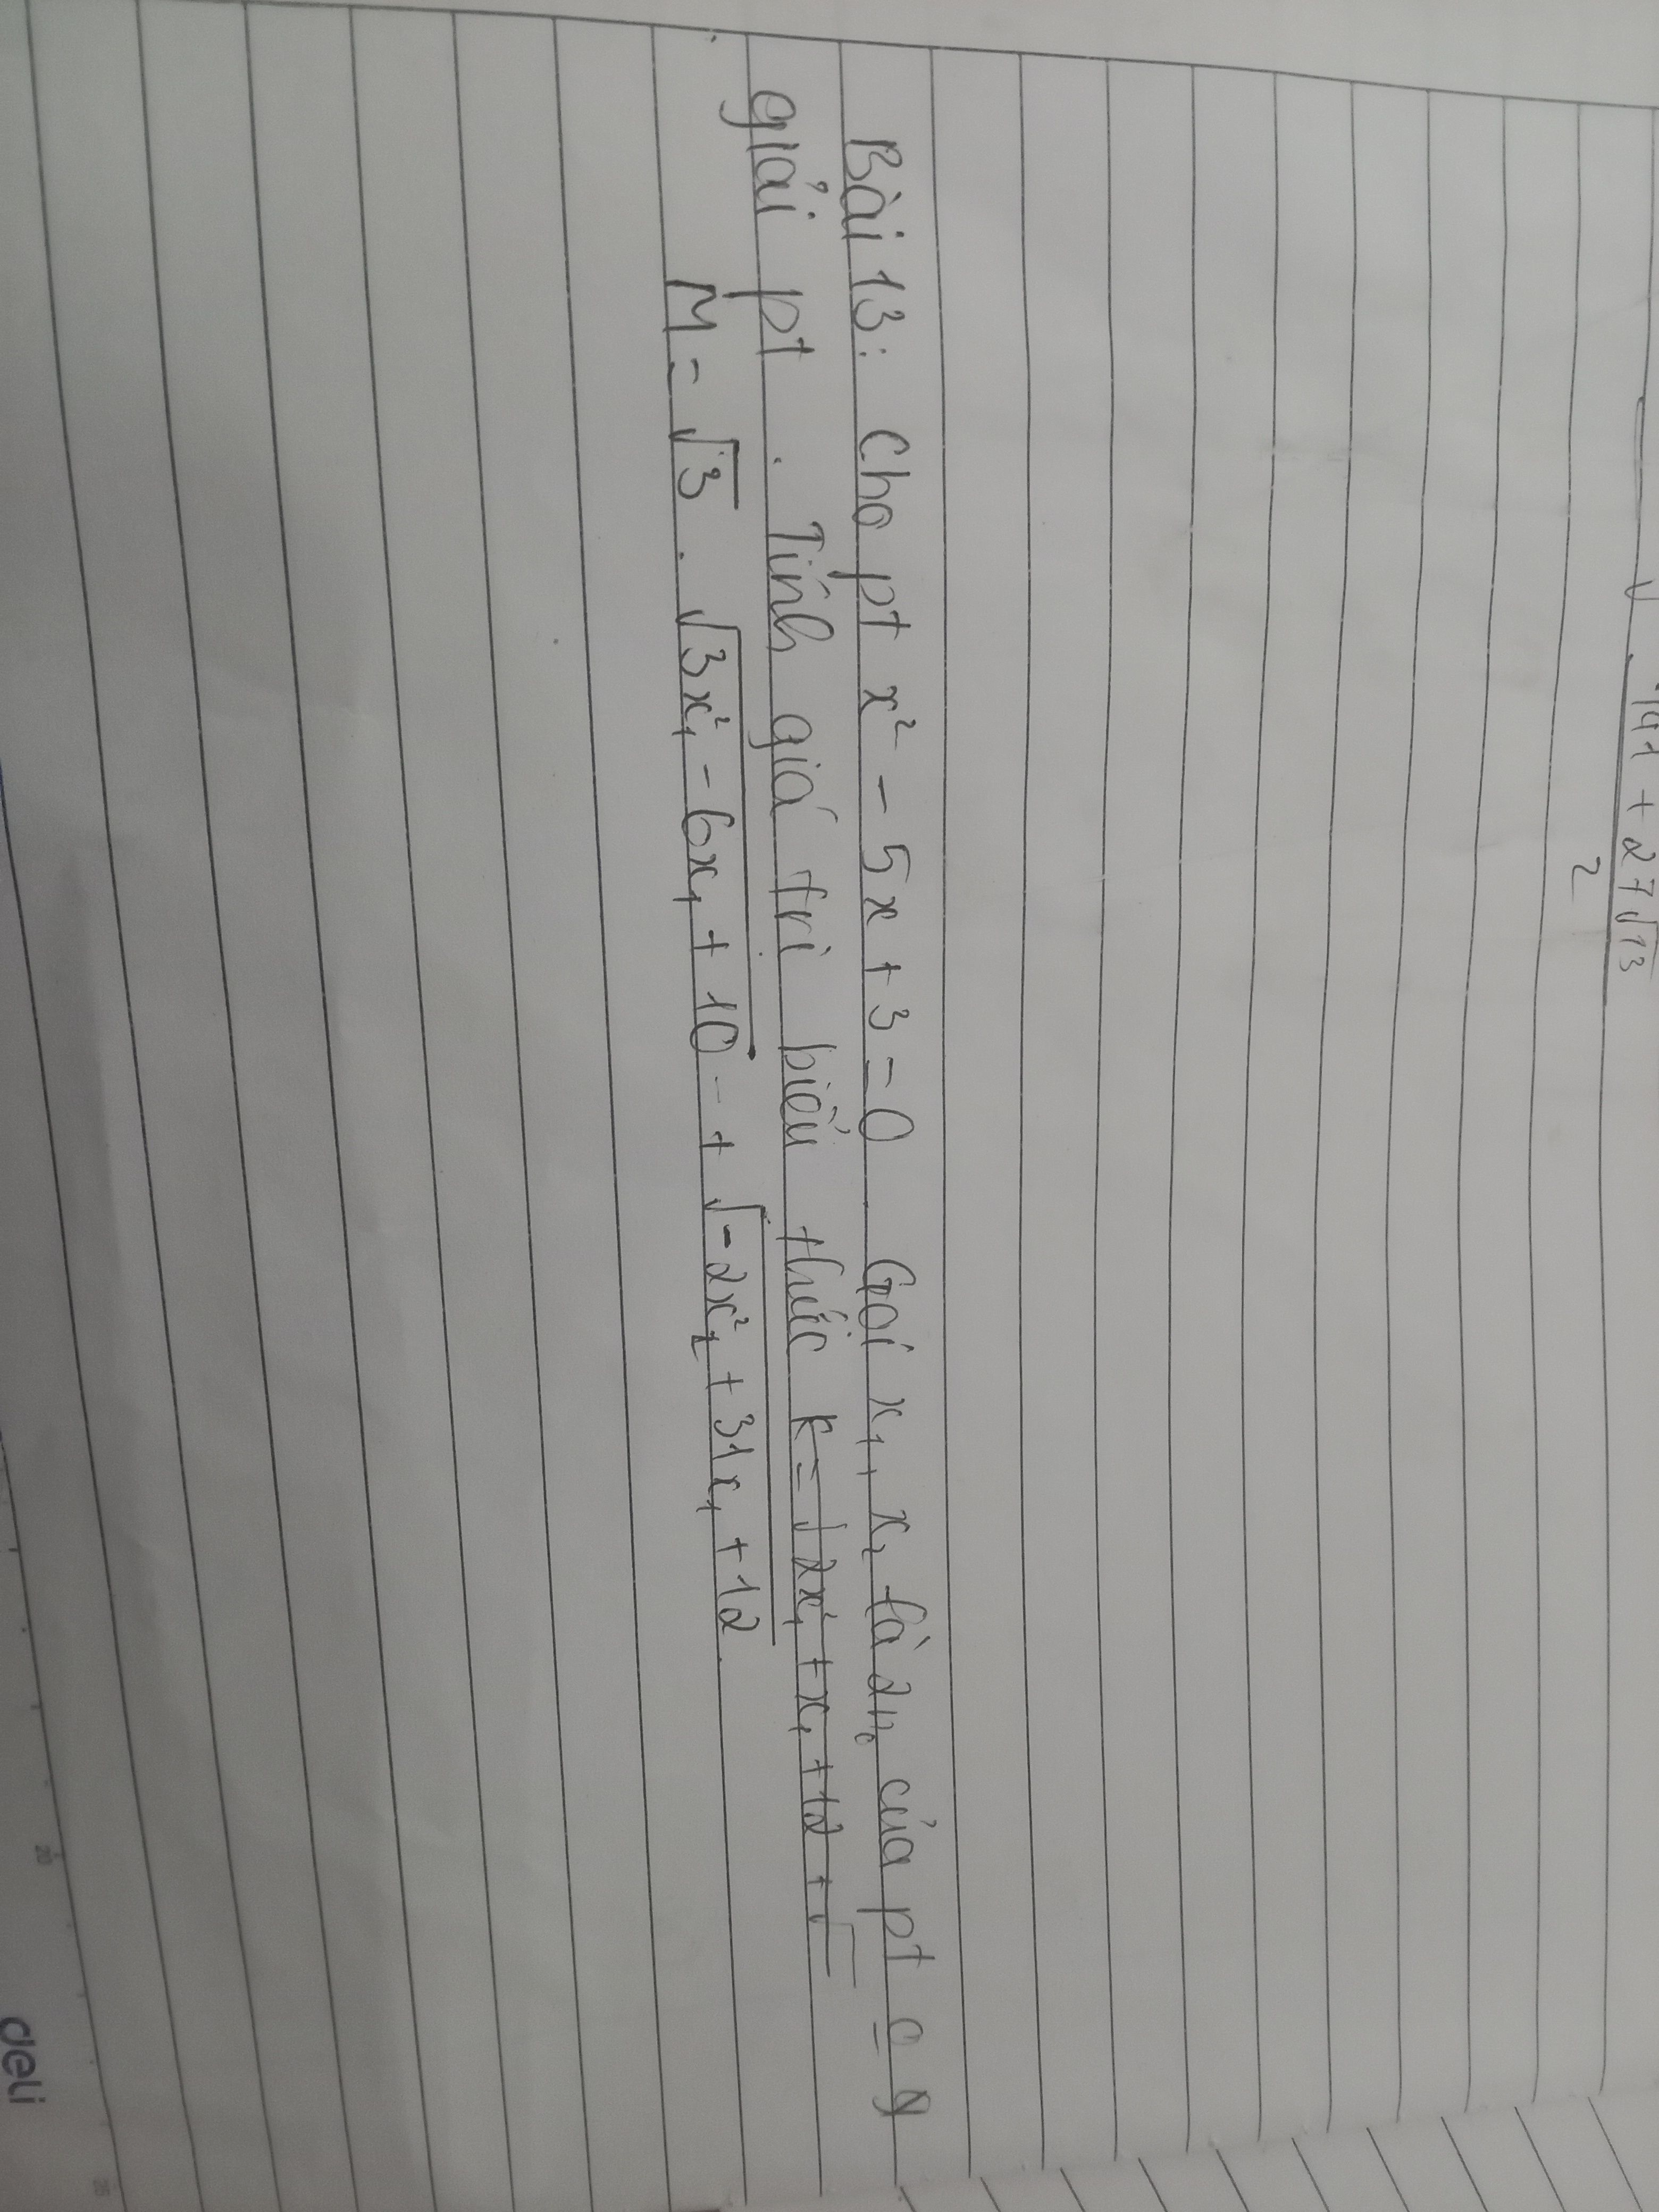 + 27√13
2
Bài 13: Cho pt x² - 5x + 3 = 0 . Gọi x₁, x₂ là 2n₀ của pt
giải pt . Tính giá trị biểu thức K = √2x₁² + x₁ + 12 + √
M = √3 . √3x₁² - 6x₁ + 10 - + √-2x₂² + 31x₁ + 12
20
deli